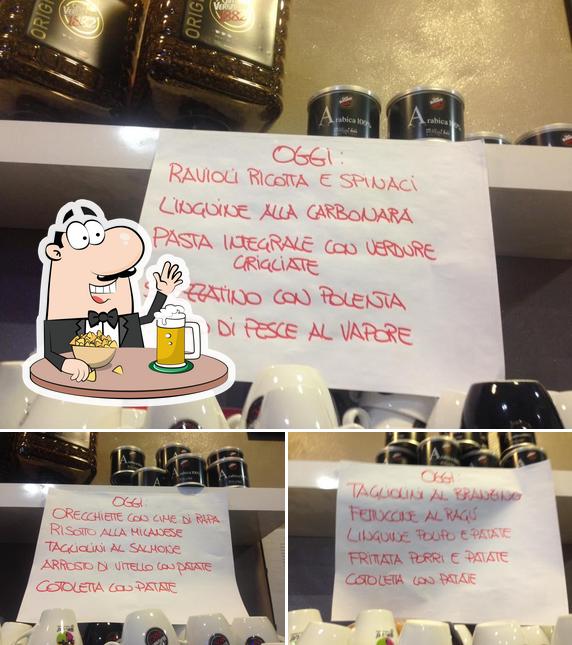 ORIG
1882
ORIG
VERGNANO
1882
Arabica 100%
Arabica 100%
OGGI:
RAVIOLI RICOTTA E SPINACI
LINGUINE ALLA CARBONARA
PASTA INTEGRALE CON VERDURE
GRIGLIATE
CON POLENTA
DI PESCE AL VAPORE
OGGI:
ORECCHIETTE CON CIME DI RAPA
RISOTTO ALLA MILANESE
TAGLIOLINI AL SALMONE
ARROSTO DI VITELLO CON PATATE
COTOLETTA CON PATATE
OGGI:
TAGLIOLINI AL BRANZINO
FETTUCCINE AL RAGÙ
LINGUINE POLPO E PATATE
FRITTATA PORRI E PATATE
COTOLETTA CON PATATE